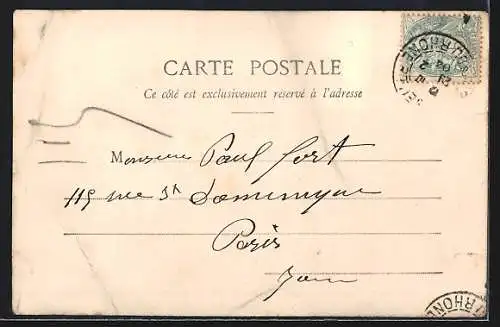 CARTE POSTALE
Ce côté est exclusivement réservé à l'adresse
Monsieur Paul Fort
119 rue St Dominique
Paris
RHONE
RHONE